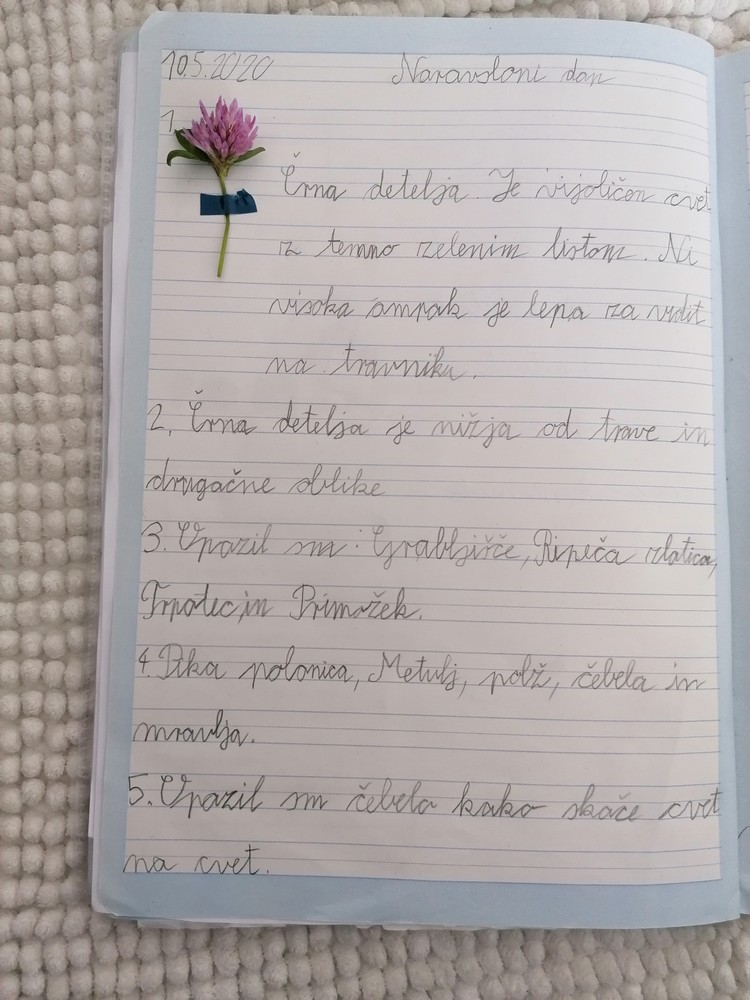 10.5.2020 Naravsloni dan
1.
Črna detelja. Je vijoličen cvet
z temno zelenim listom. Ni
visoka ampak je lepa za vidit
na travniku.
2. Črna detelja je nižja od trave in
drugačne oblike
3. Opazil sm: Grabljišče, Ripeča zlatica,
Trpotec, in Primožek.
4. Pika polonica, Metulj, polž, čebela in
mravlja.
5. Opazil sm čebelo kako skače cvet
na cvet.